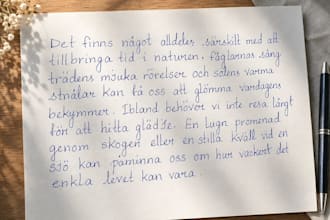 Det finns något alldeles särskilt med att
tillbringa tid i naturen, fåglarnas sång
trädens mjuka rörelser och solens varma
strålar kan få oss att glömma vardagens
bekymmer. Ibland behöver vi inte resa långt
för att hitta glädje. En lugn promenad
genom skogen eller en stilla kväll vid en
sjö kan påminna oss om hur vackert det
enkla livet kan vara.